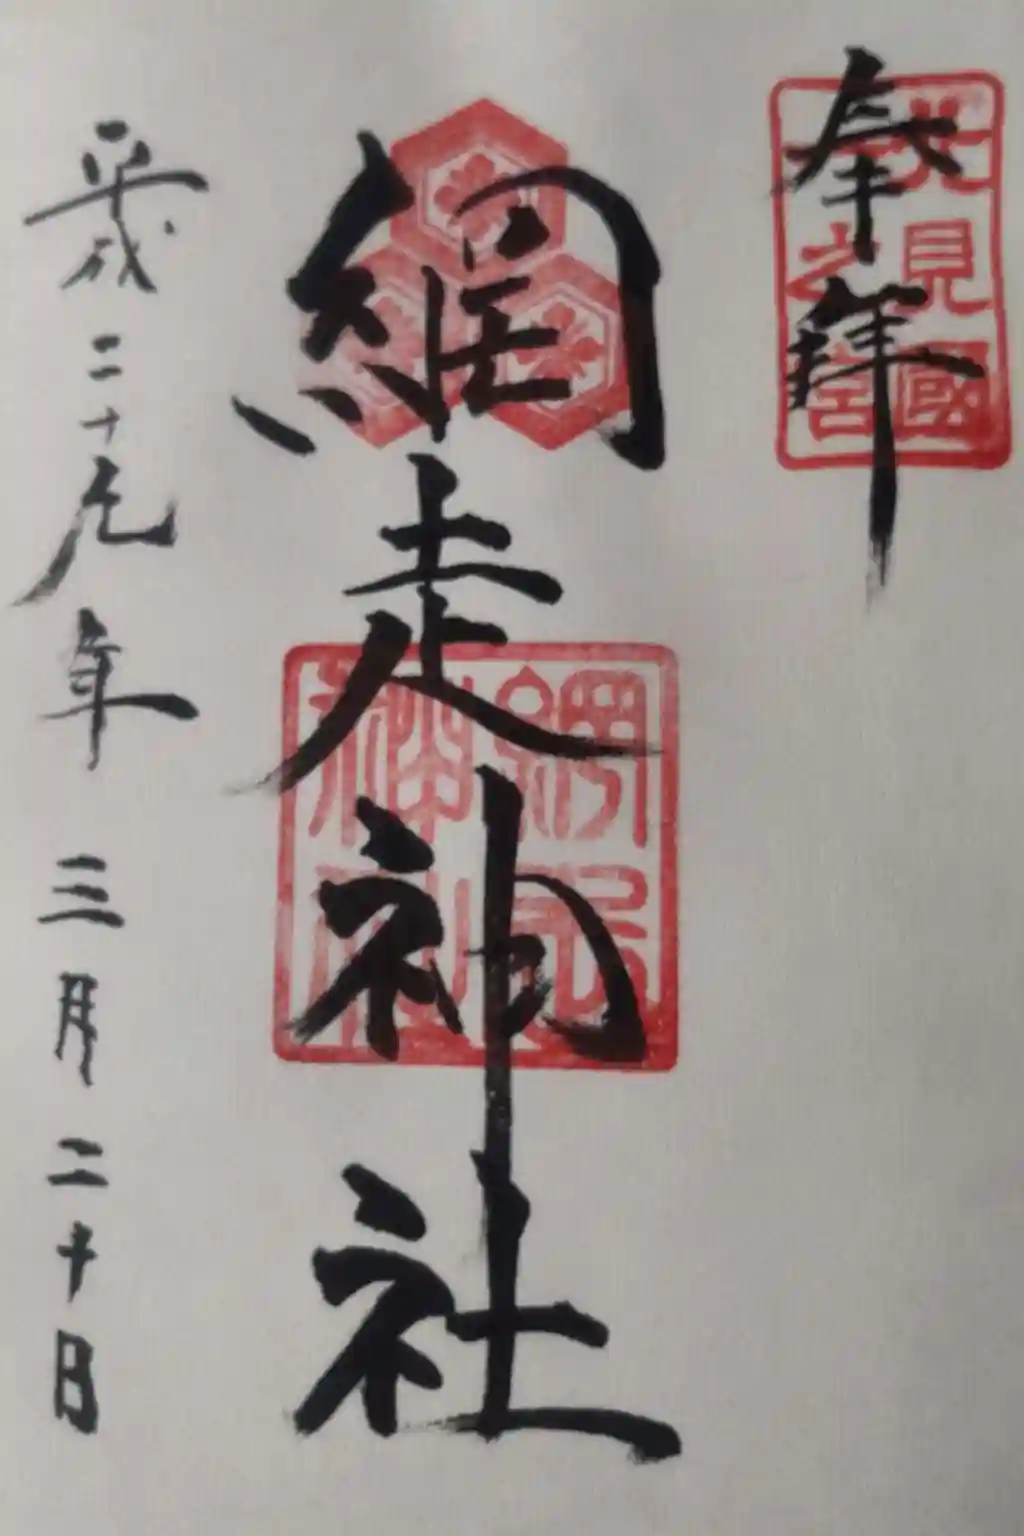 奉拝
北見國
一之宮
網走神社
網走
神社
平成二十九年三月二十日